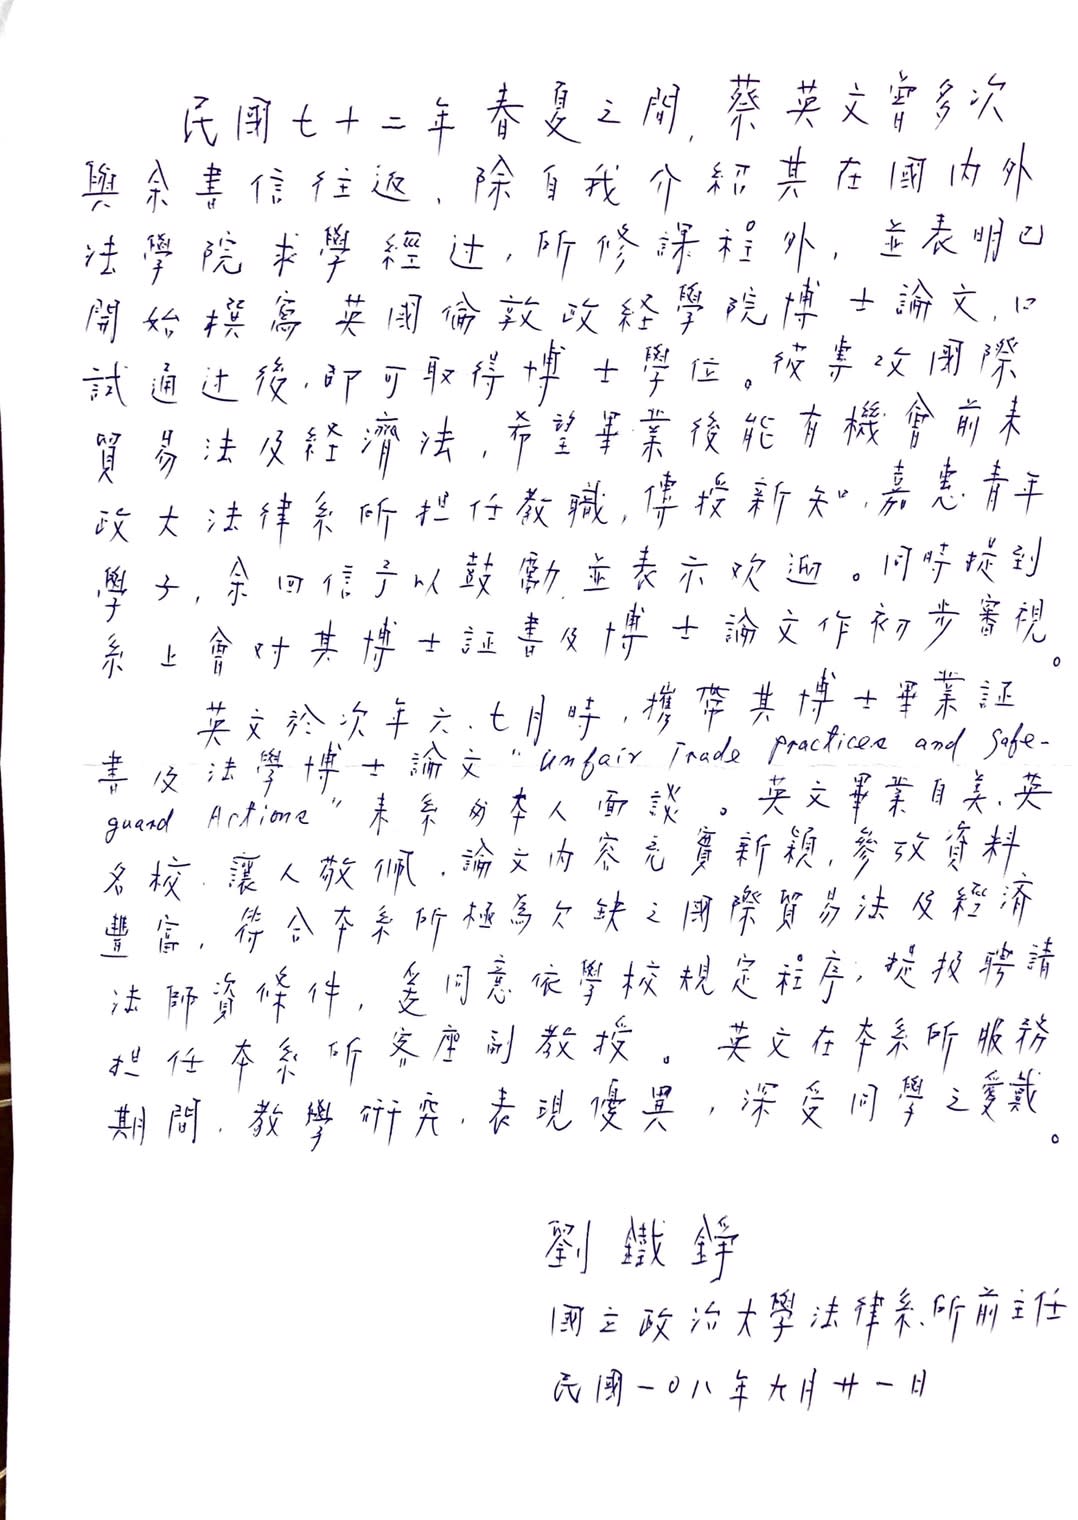 民國七十二年春夏之間，蔡英文曾多次
與余書信往返，除自我介紹其在國內外
法學院求學經过，所修課程外，並表明已
開始撰寫英國倫敦政経學院博士論文，口
試通过後，即可取得博士學位。彼專攻國際
貿易法及経濟法，希望畢業後能有機會前來
政大法律系所担任教職，傳授新知，嘉惠青年
學子，余回信予以鼓勵，並表示欢迎。同時提到
系上會对其博士証書及博士論文作初步審視。
英文於次年六、七月時，攜帶其博士畢業証
書及法學博士論文"Unfair Trade practices and Safe-
guard Actions"來系所本人面談。英文畢業自美、英
名校，讓人敬佩，論文內容充實新穎，參攷資料
豐富，符合本系所極為欠缺之國際貿易法及經济
法師資條件，爰同意依學校規定程序，提报聘請
担任本系所客座副教授。英文在本系所服務
期間，教學研究，表現優異，深受同學之愛戴。
劉鐵錚
國立政治大學法律系、所前主任
民國一0八年九月廿一日